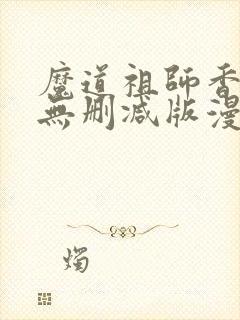 魔道祖師香
無刪减版漫
燭